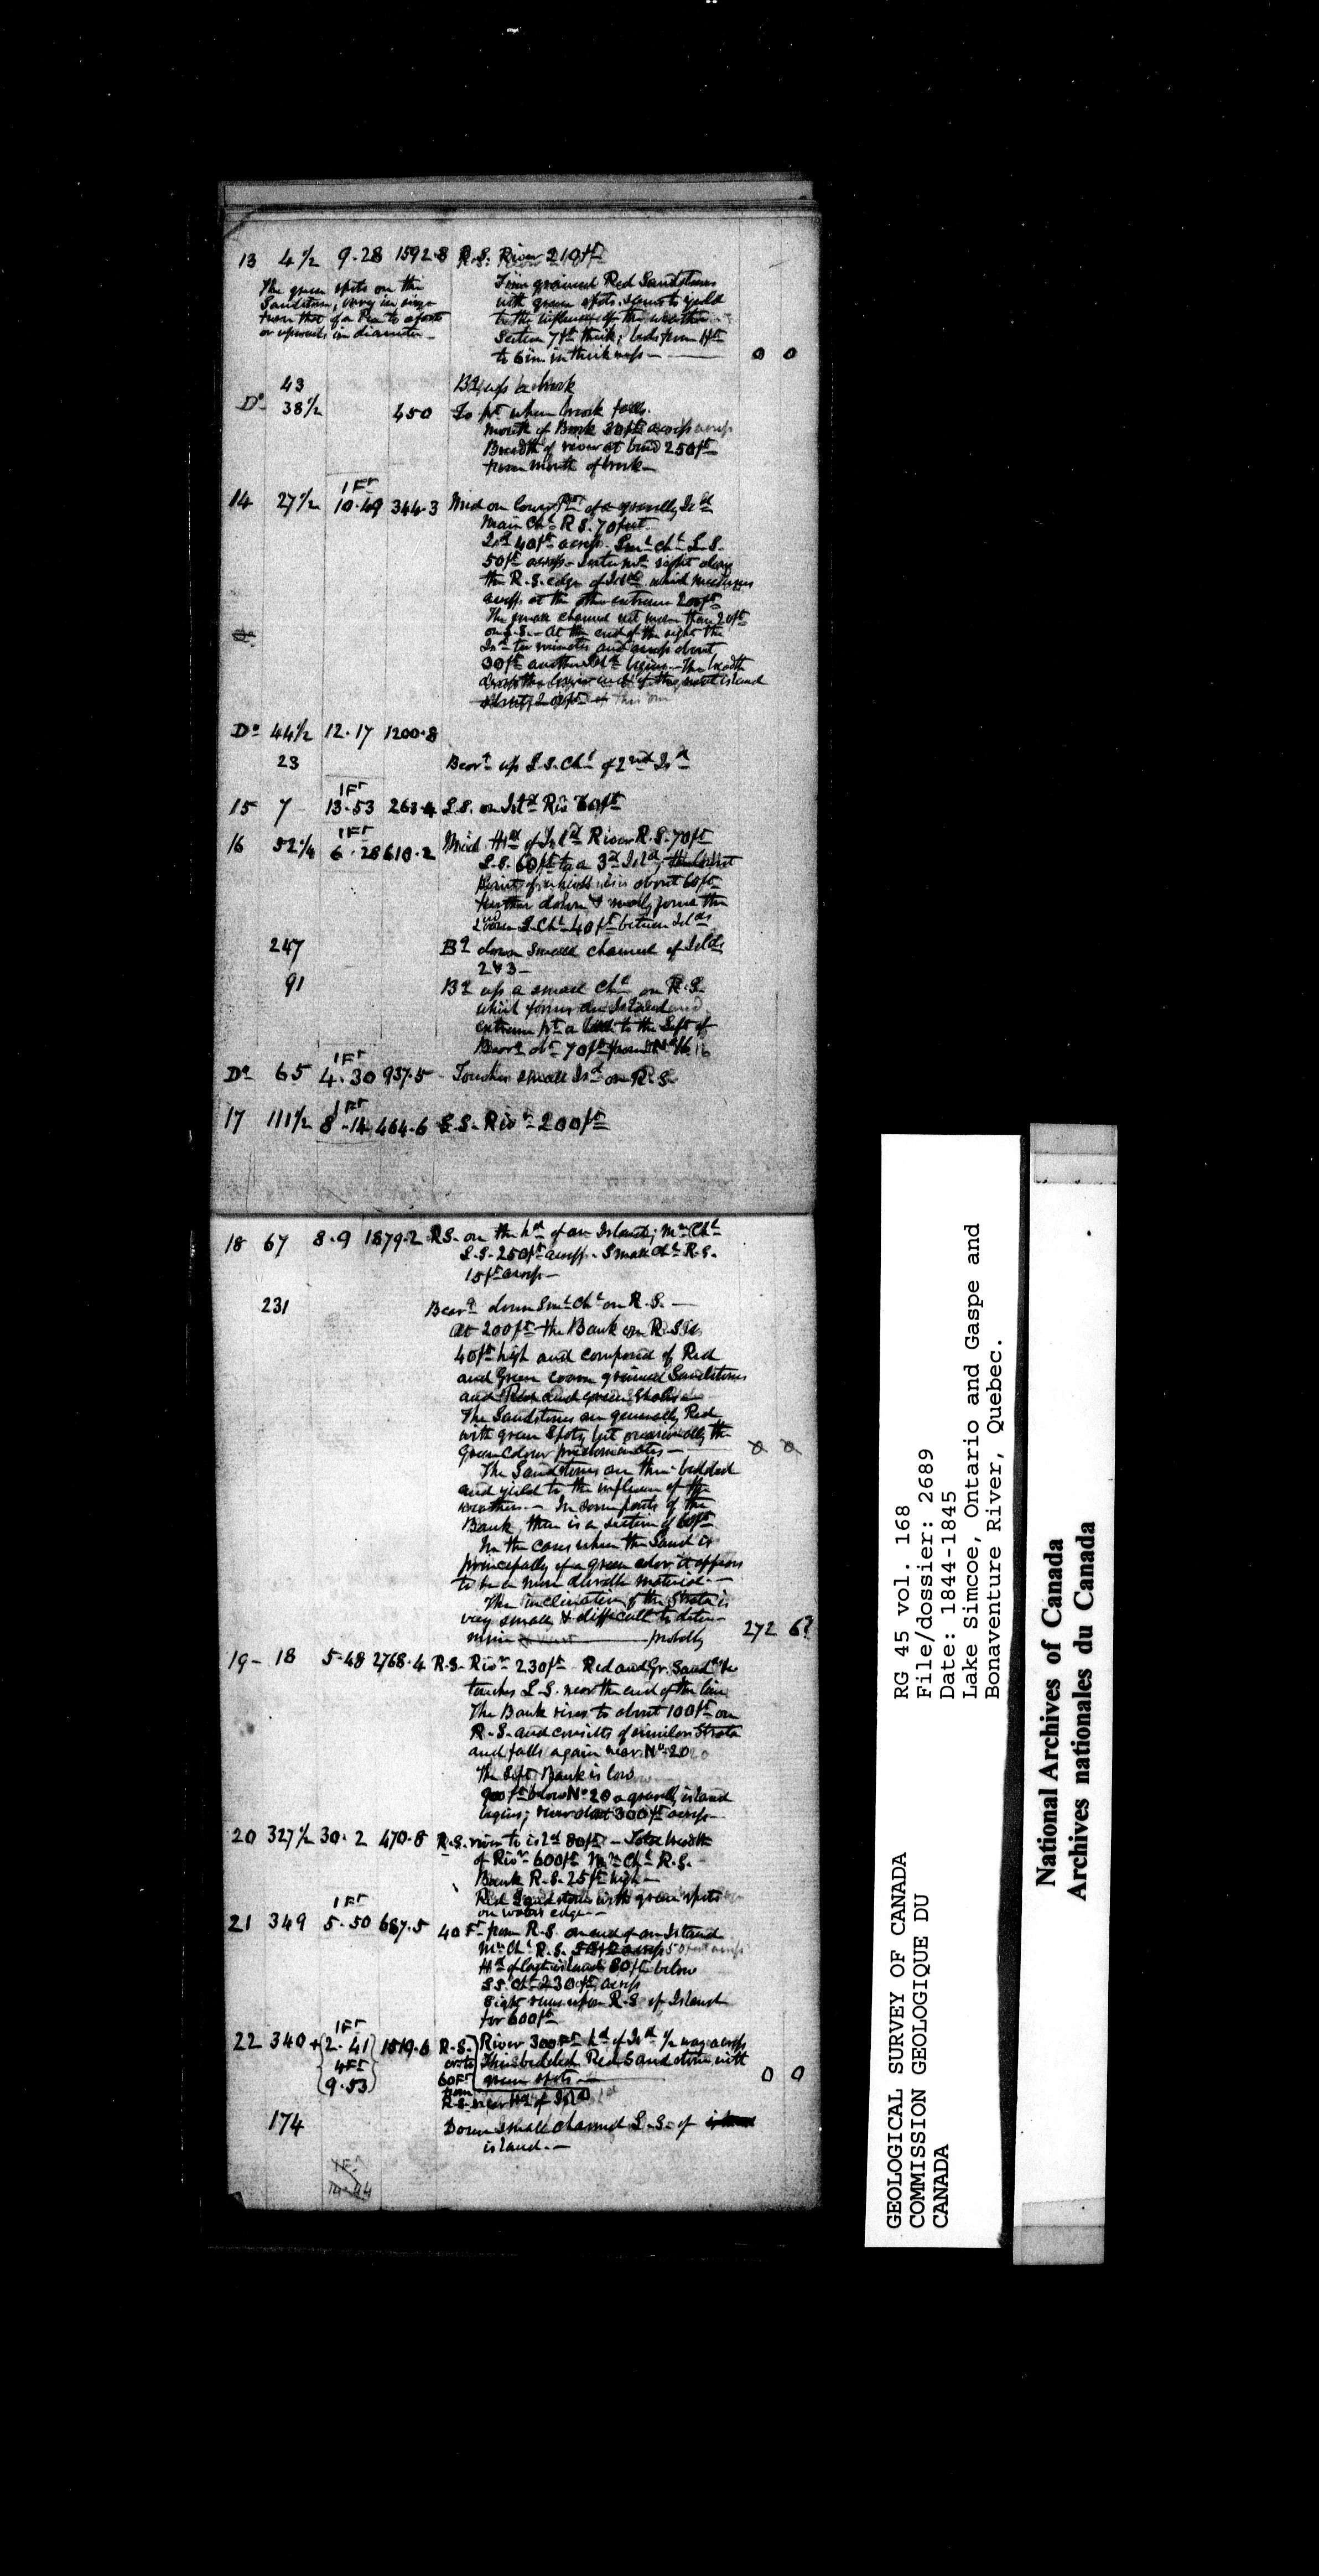 13 4½ 9.28 1592.8 R.S. River 210ft
The green spots on the
Sandstone, vary in size
from that of a Pea to a foot
or upwards in diameter
Fine grained Red Sandstone
with green spots. Seems to yield
to the influence of the weather
Section 7ft thick; beds from 1ft
to 6 in. in thickness — 0 0
43 Bg up a brook
Do 38½ 450 To pt where brook falls.
Mouth of Brook 30ft across
Breadth of river at bend 250ft
from mouth of brook —
14 27½ 1Fr 10.49 344.3 Mid on lower Pt of a gravelly Isld
Main Chl R.S. 70 feet
Isd 40ft across. Sml Chl L.S.
50ft across — sight along
the R.S. edge of Isld which measures
across at the other extreme 200ft
The small channel not more than 20ft
on L.S. — At the end of the sight the
Isd terminates and across about
30ft another Isld begins — The breadth
across the lower end of the next island
Do 44½ 12.17 1200.8
23 Bearg up L.S. Chl of 2nd Isd
15 7 1Fr 13.53 263.4 L.S. on Isld Riv 60ft
16 52¼ 1Fr 6.28 610.2 Mid. Hd of Isld River R.S. 70ft
L.S. 60ft to a 3d Isld, the lowest
Point of which is about 60ft
further down & nearly joins the
2nd Chl 40ft between Islds
247 Bg down small channel of Islds
2 & 3 —
91 Bg up a small Chl on R.S.
which forms an Island
extreme pt a little to the left of
Bearg dt 70ft from No 16
Do 65 1Fr 4.30 937.5 Touches small Isd on R.S.
17 111½ 1Fr 8.14 464.6 L.S. Rivr 200ft
18 67 8.9 1879.2 R.S. on the hd of an Island; Mn Chl
L.S. 250ft across. Small Chl R.S.
15ft across —
231 Bearg down Sml Chl on R.S. —
At 200ft the Bank on R.S. is
40ft high and composed of Red
and Green coarse grained Sandstones
and Red and green Shales —
The Sandstones are generally Red
with green Spots, but occasionally the
Green Colour predominates — 0 0
The Sandstones are thin-bedded
and yield to the influence of the
weather. — In some parts of the
Bank, there is a section of 60ft
In the cases where the Sand is
principally of a green color it appears
to be a more durable material —
The inclination of the Strata is
very small & difficult to deter-
mine — probably 272 6?
19 — 18 5.48 2768.4 R.S. Rivr 230ft Red and Gr. Sandstone
touches L.S. near the end of the line
The Bank rises to about 100ft on
R.S. and consists of similar Strata
and falls again near No 20
The Left Bank is low
900ft below No 20 a gravelly island
begins; river about 300ft across —
20 327½ 30.2 470.8 R.S. river to isld 80ft — Total breadth
of Rivr 600ft Mn Chl R.S.
Bank R.S. 25ft high —
Red Sandstones with green spots
on waters edge —
21 349 1Fr 5.50 687.5 40Ft from R.S. on end of an Island
Mn Chl R.S. 50ft across 50 feet across
Hd of last island 80ft below
LS Chl 230ft across
Sight runs upon R.S. of Island
for 600ft
22 340 + {1Fr 2.41 4Fr 9.53} 1519.6 R.S. River 300Ft hd of Isd ½ way across
60Ft from R.S. near Hd of Isld
Thin bedded Red Sandstone with
green spots — 0 0
174 Down small channel L.S. of
island. —
GEOLOGICAL SURVEY OF CANADA
COMMISSION GEOLOGIQUE DU
CANADA
RG 45 vol. 168
File/dossier: 2689
Date: 1844-1845
Lake Simcoe, Ontario and Gaspe and
Bonaventure River, Quebec.
National Archives of Canada
Archives nationales du Canada